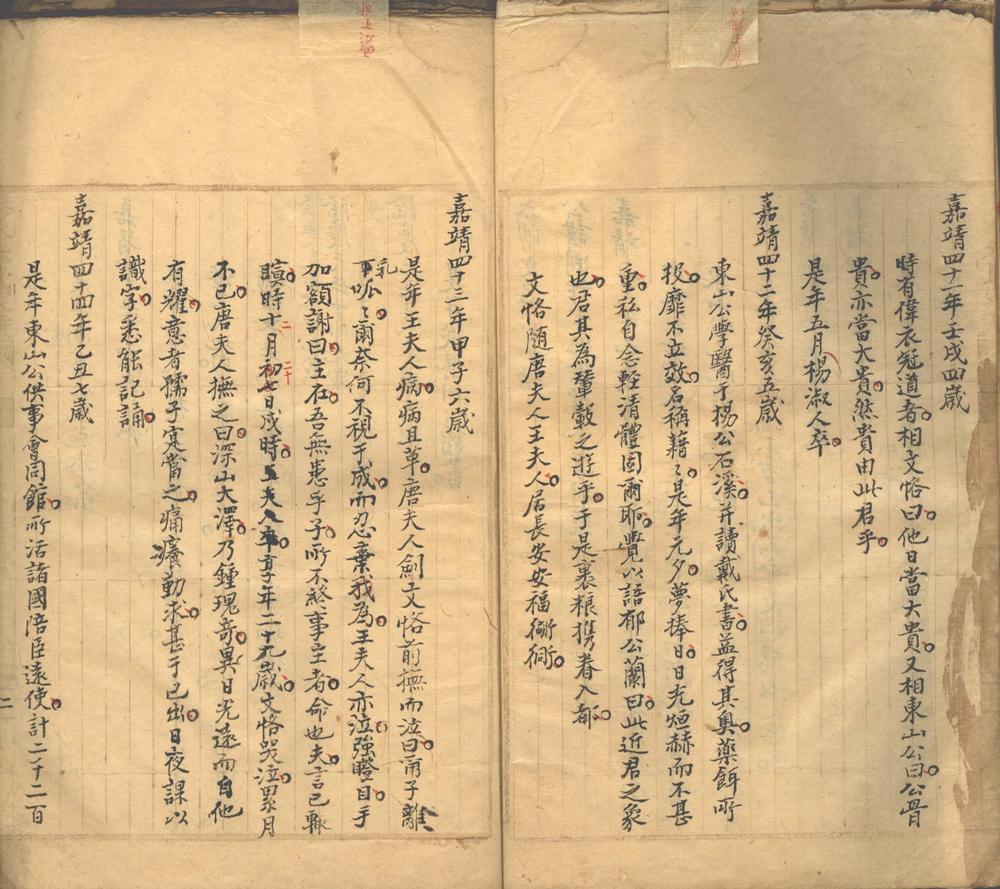 嘉靖四十一年壬戌四歲
時有偉衣冠道者相文恪曰他日當大貴又相東山公曰公骨
貴亦當大貴然貴由此君乎
是年五月楊淑人卒
嘉靖四十二年癸亥五歲
東山公學醫于楊公石溪并讀戴氏書益得其奧藥餌所
投靡不立效名稱藉〻是年元夕夢捧日日光烜赫而不甚
重私自念輕清體固爾耶覺以語郁公蘭曰此近君之象
也君其為輦轂之遊乎于是裹粮携眷入都
文恪隨唐夫人王夫人居長安安福衚衕
嘉靖四十三年甲子六歲
是年王夫人病病且革唐夫人劍文恪前撫而泣曰甫子離
乳下呱〻爾奈何不視于成而忍棄我為王夫人亦泣強瞪目手
加額謝曰主在吾無患乎子所不終事主者命也夫言已輒
瞑時十二月初七二十日戌時王夫人卒享年二十九歲文恪哭泣累月
不已唐夫人撫之曰深山大澤乃鍾瑰奇異日光遠而自他
有耀意者孺子寔當之痛癢勤求甚于己出日夜課以
識字悉能記誦
嘉靖四十四年乙丑七歲
是年東山公供事會同館所活諸國陪臣遠使計二千二百
二